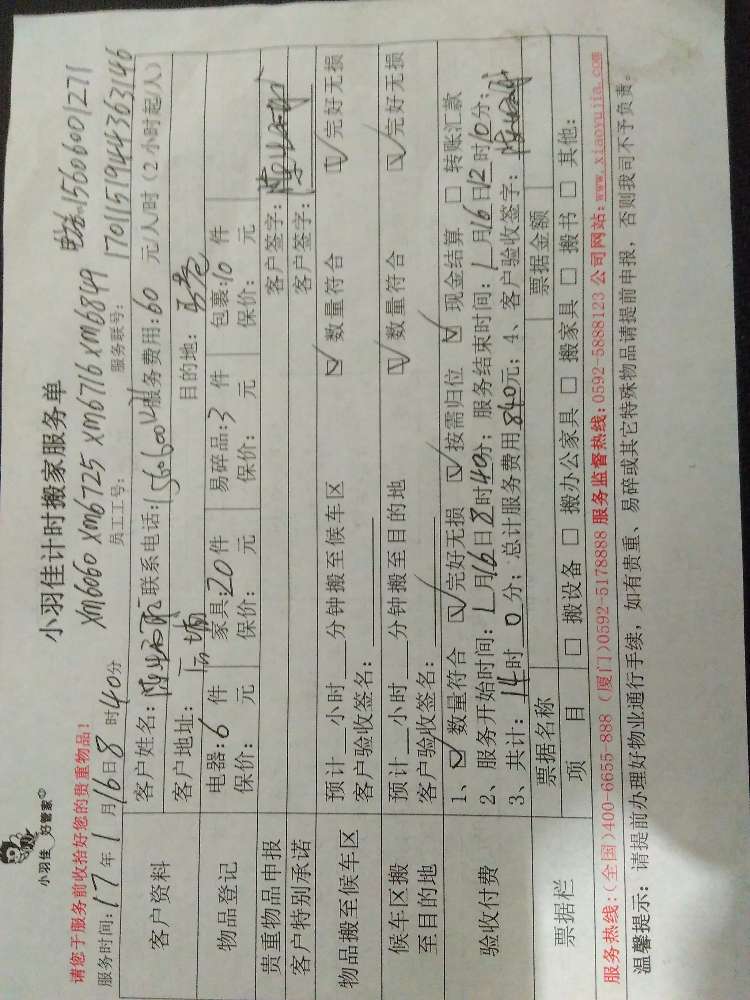 小羽佳 好管家
小羽佳计时搬家服务单
请您于服务前收拾好您的贵重物品!
xm6060 xm6725 xm6716 xm6849 电话:15606001271
服务时间:17年1月16日8时40分 员工工号: 服务联号: 1701151944363146
客户资料
客户姓名: 联系电话: 服务费用:60 元/人/时(2小时起/人)
客户地址: 目的地:
物品登记
电器:6件 家具:20件 易碎品:3件 包裹:10件
保价: 元 保价: 元 保价: 元 保价: 元
贵重物品申报 客户签字:
客户特别承诺 客户签字:
物品搬至候车区
预计__小时__分钟搬至候车区 ☑数量符合 ☑完好无损
客户验收签名:
候车区搬至目的地
预计__小时__分钟搬至目的地 ☑数量符合 ☑完好无损
客户验收签名:
验收付费
1、☑数量符合 ☑完好无损 ☑按需归位 ☑现金结算 □转账汇款
2、服务开始时间:1月16日8时40分;服务结束时间:1月16日12时10分;
3、共计:14时0分;总计服务费用840元;4、客户验收签字:
票据栏
票据名称 票据金额
项目 □搬设备 □搬办公家具 □搬家具 □搬书 □其他:
服务热线:(全国)400-6655-888 (厦门)0592-5178888 服务监督热线:0592-5888123 公司网站:www.xiaoyujia.com
温馨提示:请提前办理好物业通行手续,如有贵重、易碎或其它特殊物品请提前申报,否则我司不予负责。